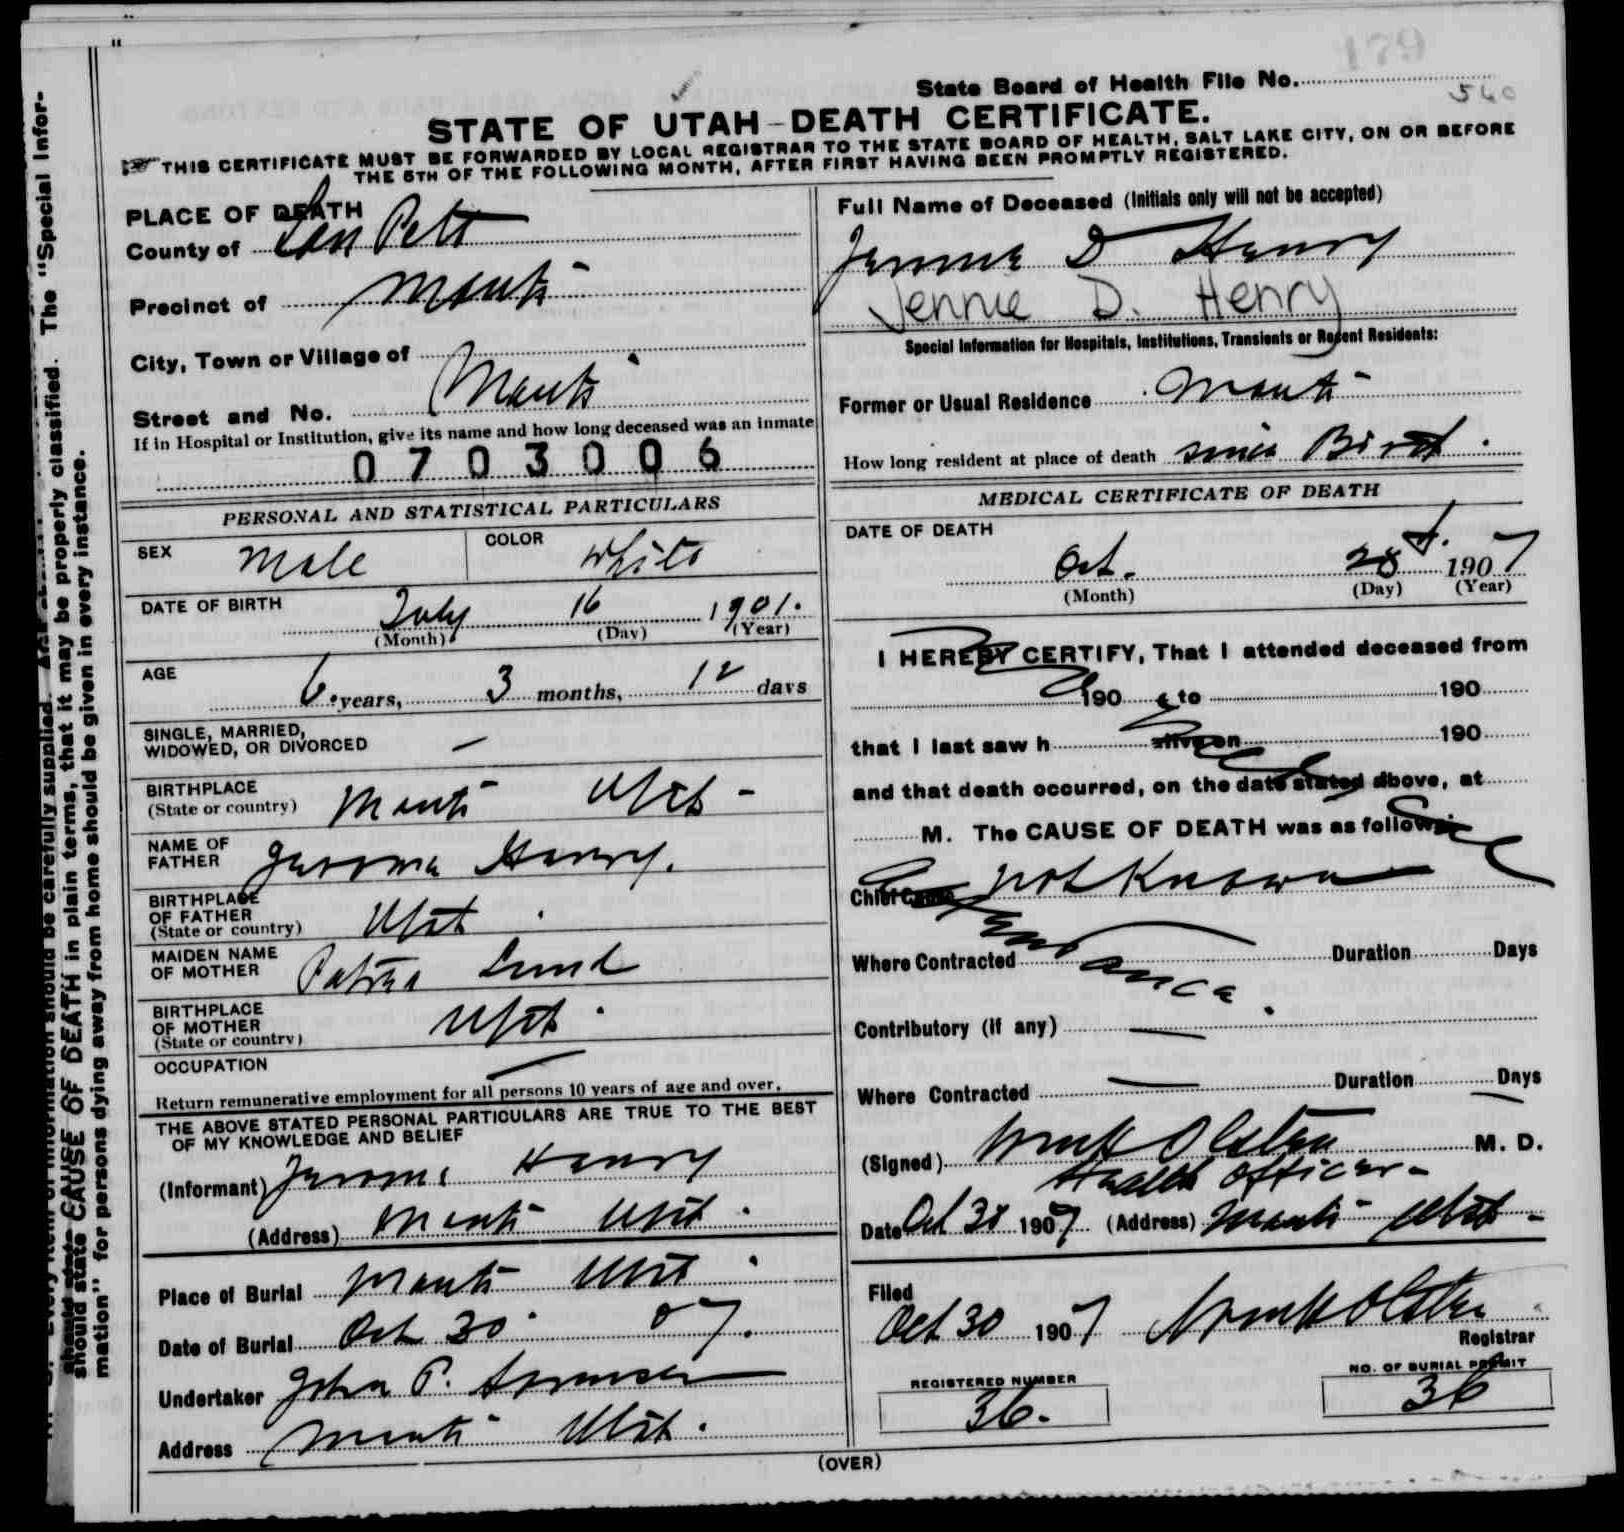 179
State Board of Health File No.
560
STATE OF UTAH-DEATH CERTIFICATE.
THIS CERTIFICATE MUST BE FORWARDED BY LOCAL REGISTRAR TO THE STATE BOARD OF HEALTH, SALT LAKE CITY, ON OR BEFORE
THE 5TH OF THE FOLLOWING MONTH, AFTER FIRST HAVING BEEN PROMPTLY REGISTERED.
PLACE OF DEATH
County of San Pete
Precinct of Manti
City, Town or Village of
Manti
Street and No.
If in Hospital or Institution, give its name and how long deceased was an inmate
0703006
PERSONAL AND STATISTICAL PARTICULARS
SEX Male COLOR White
DATE OF BIRTH July 16 1901.
(Month) (Day) (Year)
AGE 6 years, 3 months, 12 days
SINGLE, MARRIED,
WIDOWED, OR DIVORCED —
BIRTHPLACE
(State or country) Manti Utah -
NAME OF
FATHER Jerome Henry.
BIRTHPLACE
OF FATHER
(State or country) Utah
MAIDEN NAME
OF MOTHER Lund
BIRTHPLACE
OF MOTHER
(State or country) Utah
OCCUPATION —
Return remunerative employment for all persons 10 years of age and over.
THE ABOVE STATED PERSONAL PARTICULARS ARE TRUE TO THE BEST
OF MY KNOWLEDGE AND BELIEF
(Informant) Jerome Henry
(Address) Manti Utah.
Place of Burial Manti Utah
Date of Burial Oct 30 07.
Undertaker John P. Sorensen
Address Manti Utah.
Full Name of Deceased (Initials only will not be accepted)
Jennie D Henry
Jennie D. Henry
Special Information for Hospitals, Institutions, Transients or Recent Residents:
Former or Usual Residence Manti
How long resident at place of death since Birth.
MEDICAL CERTIFICATE OF DEATH
DATE OF DEATH
Oct. 28 1907
(Month) (Day) (Year)
I HEREBY CERTIFY, That I attended deceased from
190 to 190
that I last saw h alive on 190
and that death occurred, on the date stated above, at
M. The CAUSE OF DEATH was as follows:
Chief Cause not Known
Where Contracted Duration Days
Contributory (if any) —
Where Contracted — Duration Days
(Signed) M. D.
Health Officer-
Date Oct 30 1907 (Address) Manti Utah -
Filed
Oct 30 1907
Registrar
REGISTERED NUMBER
36.
NO. OF BURIAL PERMIT
36
(OVER)
The "Special Infor-
should state CAUSE OF DEATH in plain terms, that it may be properly classified.
mation" for persons dying away from home should be given in every instance.